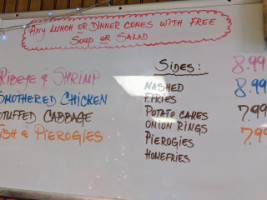 Any Lunch or Dinner comes with free
Soup or Salad
Ribeye & Shrimp
Smothered Chicken
Stuffed Cabbage
Fish & Pierogies
Sides:
Mashed
F.Fries
Potato Cakes
Onion Rings
Pierogies
Homefries
8.99
8.99
7.99
7.99